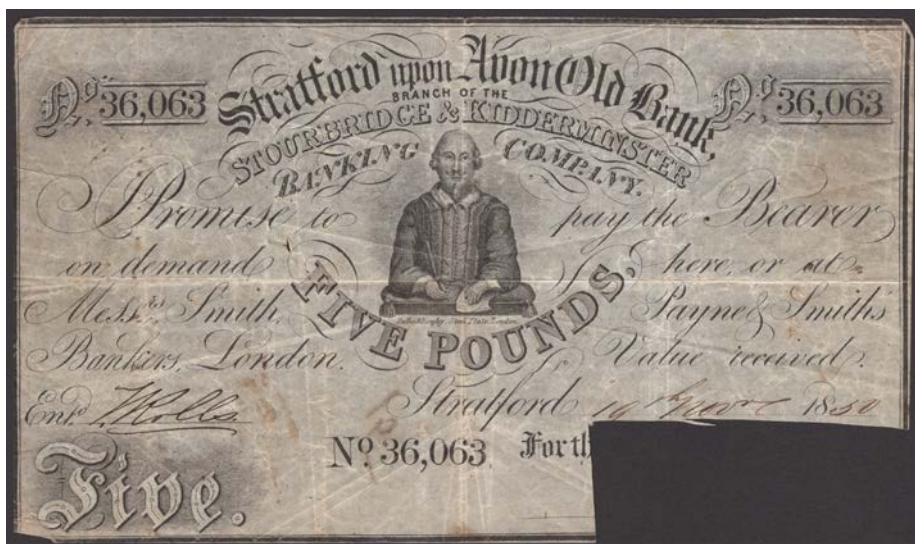 Stratford upon Avon Old Bank,
No. 36,063
No. 36,063
BRANCH OF THE
STOURBRIDGE & KIDDERMINSTER
BANKING COMPANY.
I Promise to pay the Bearer
on demand FIVE POUNDS, here, or at
Messrs. Smith, Payne & Smith's
Bankers, London. Value received.
Stratford 19 Novr 1850
Entd.
No. 36,063 For th
Five.